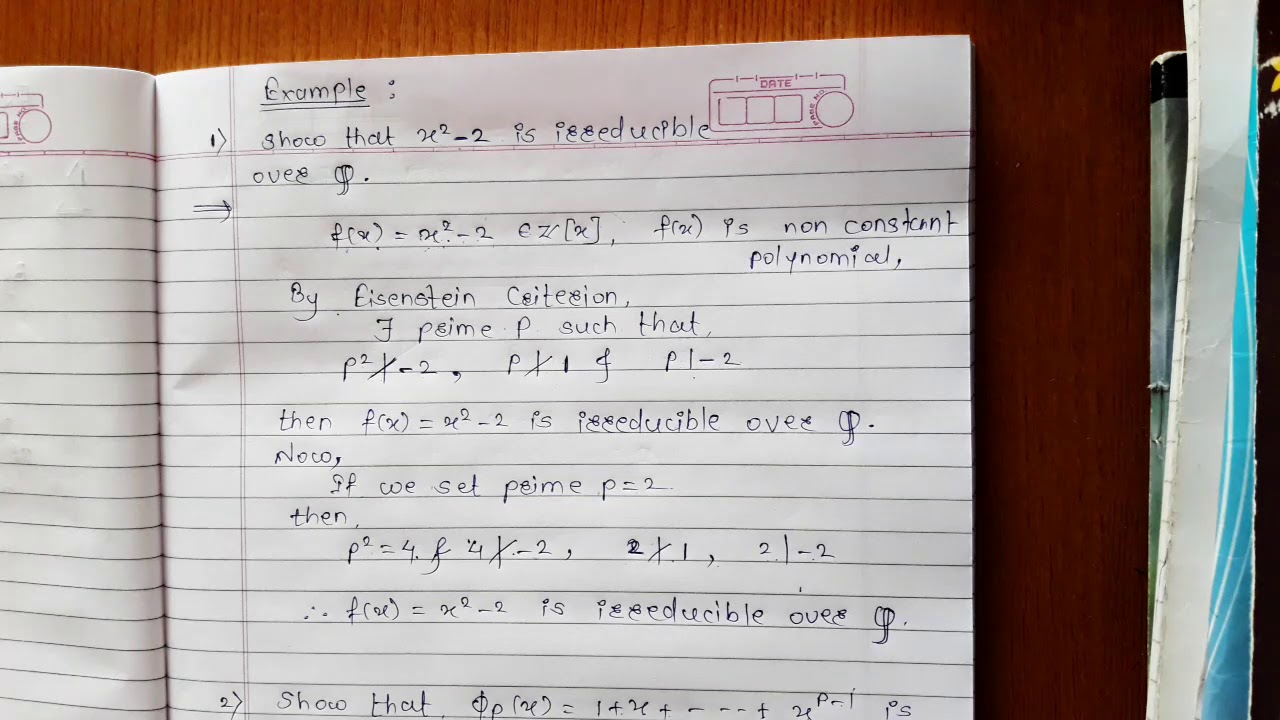 Example :
DATE
PAGE NO.
1) Show that x²-2 is irreducible
over ℚ.
⇒
f(x) = x²-2 ∈ ℤ[x], f(x) is non constant
polynomial,
By Eisenstein Criterion,
∃ prime P such that,
P² ∤ -2, P ∤ 1 & P | -2
then f(x) = x²-2 is irreducible over ℚ.
Now,
If we set prime p=2.
then,
P² = 4. & 4 ∤ -2, 2 ∤ 1, 2 | -2
∴ f(x) = x²-2 is irreducible over ℚ.
2) Show that, Φp(x) = 1+x+ - - - + x^{P-1} is